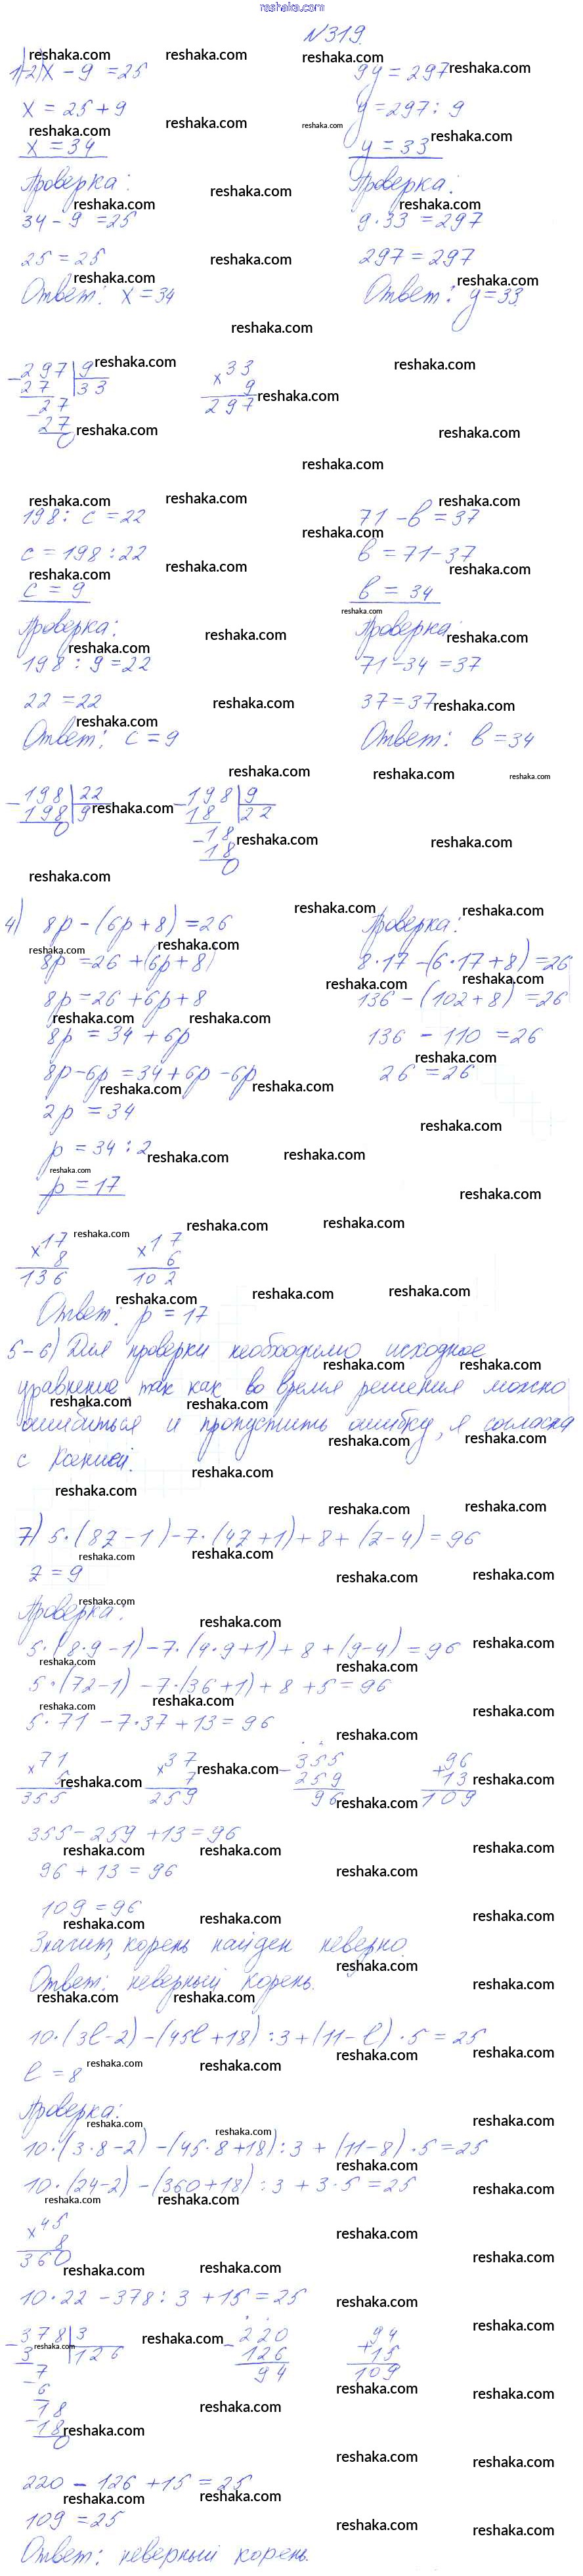 reshaka.com
№319.
1)-2) x - 9 = 25
9y = 297
x = 25 + 9
y = 297 : 9
x = 34
y = 33
Проверка:
Проверка:
34 - 9 = 25
9 · 33 = 297
25 = 25
297 = 297
Ответ: x = 34
Ответ: y = 33.
297 | 9
27 33
27
27
0
× 33
9
297
198 : c = 22
71 - в = 37
c = 198 : 22
в = 71 - 37
c = 9
в = 34
Проверка:
Проверка:
198 : 9 = 22
71 - 34 = 37
22 = 22
37 = 37
Ответ: c = 9
Ответ: в = 34
198 | 22
198 9
0
198 | 9
18 22
18
18
0
4) 8p - (6p + 8) = 26
Проверка:
8p = 26 + (6p + 8)
8 · 17 - (6 · 17 + 8) = 26
8p = 26 + 6p + 8
136 - (102 + 8) = 26
8p = 34 + 6p
136 - 110 = 26
8p - 6p = 34 + 6p - 6p
26 = 26
2p = 34
p = 34 : 2
p = 17
× 17
8
136
× 17
6
102
Ответ: p = 17
5-6) Для проверки необходимо исходное
уравнение, так как во время решения можно
ошибиться и пропустить ошибку, я согласна
с Ксенией.
7) 5 · (8z - 1) - 7 · (4z + 1) + 8 + (z - 4) = 96
z = 9
Проверка:
5 · (8 · 9 - 1) - 7 · (4 · 9 + 1) + 8 + (9 - 4) = 96
5 · (72 - 1) - 7 · (36 + 1) + 8 + 5 = 96
5 · 71 - 7 · 37 + 13 = 96
× 71
5
355
× 37
7
259
- 355
259
96
+ 96
13
109
355 - 259 + 13 = 96
96 + 13 = 96
109 = 96
Значит, корень найден неверно.
Ответ: неверный корень.
10 · (3l - 2) - (45l + 18) : 3 + (11 - l) · 5 = 25
l = 8
Проверка:
10 · (3 · 8 - 2) - (45 · 8 + 18) : 3 + (11 - 8) · 5 = 25
10 · (24 - 2) - (360 + 18) : 3 + 3 · 5 = 25
× 45
8
360
10 · 22 - 378 : 3 + 15 = 25
378 | 3
3 126
7
6
18
18
0
- 220
126
94
+ 94
15
109
220 - 126 + 15 = 25
109 = 25
Ответ: неверный корень.